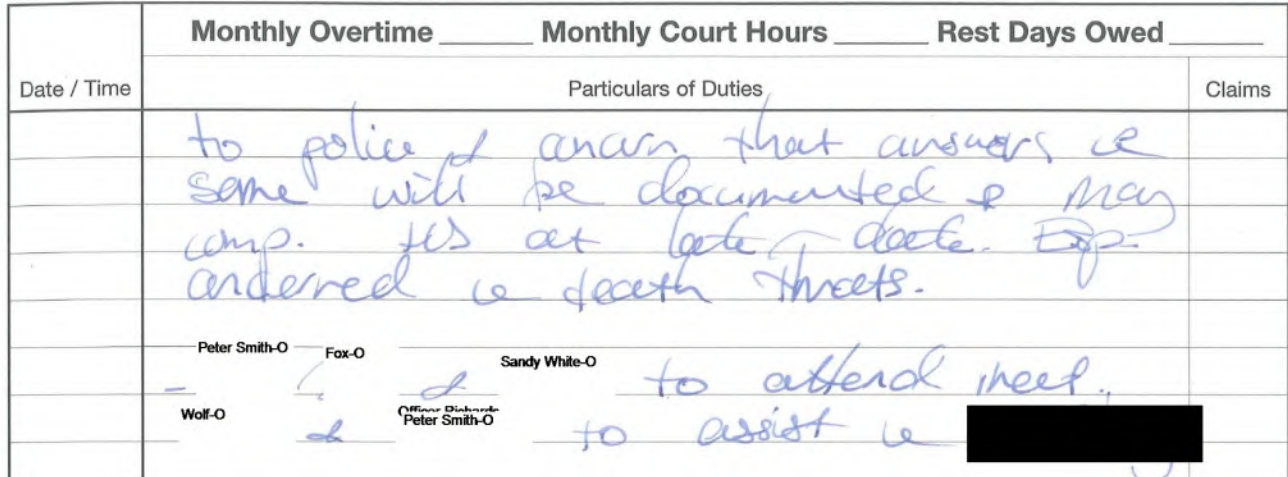 Monthly Overtime ______ Monthly Court Hours ______ Rest Days Owed ______
Date / Time Particulars of Duties Claims
to police & that answers
same will be documented & may
comp. at date. Exp.
death threats.
Peter Smith-O Fox-O Sandy White-O
- , & to attend meet.
Wolf-O Officer Richards
Peter Smith-O
& to assist